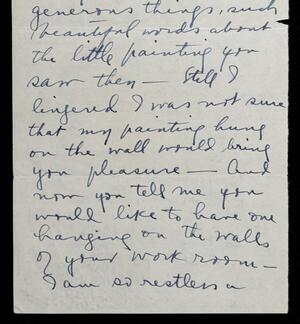 generous things, such
beautiful words about
the little painting you
saw then — Still I
lingered I was not sure
that my painting hung
on the wall would bring
you pleasure — And
now you tell me you
would like to have one
hanging on the walls
of your work room —
I am so restless a